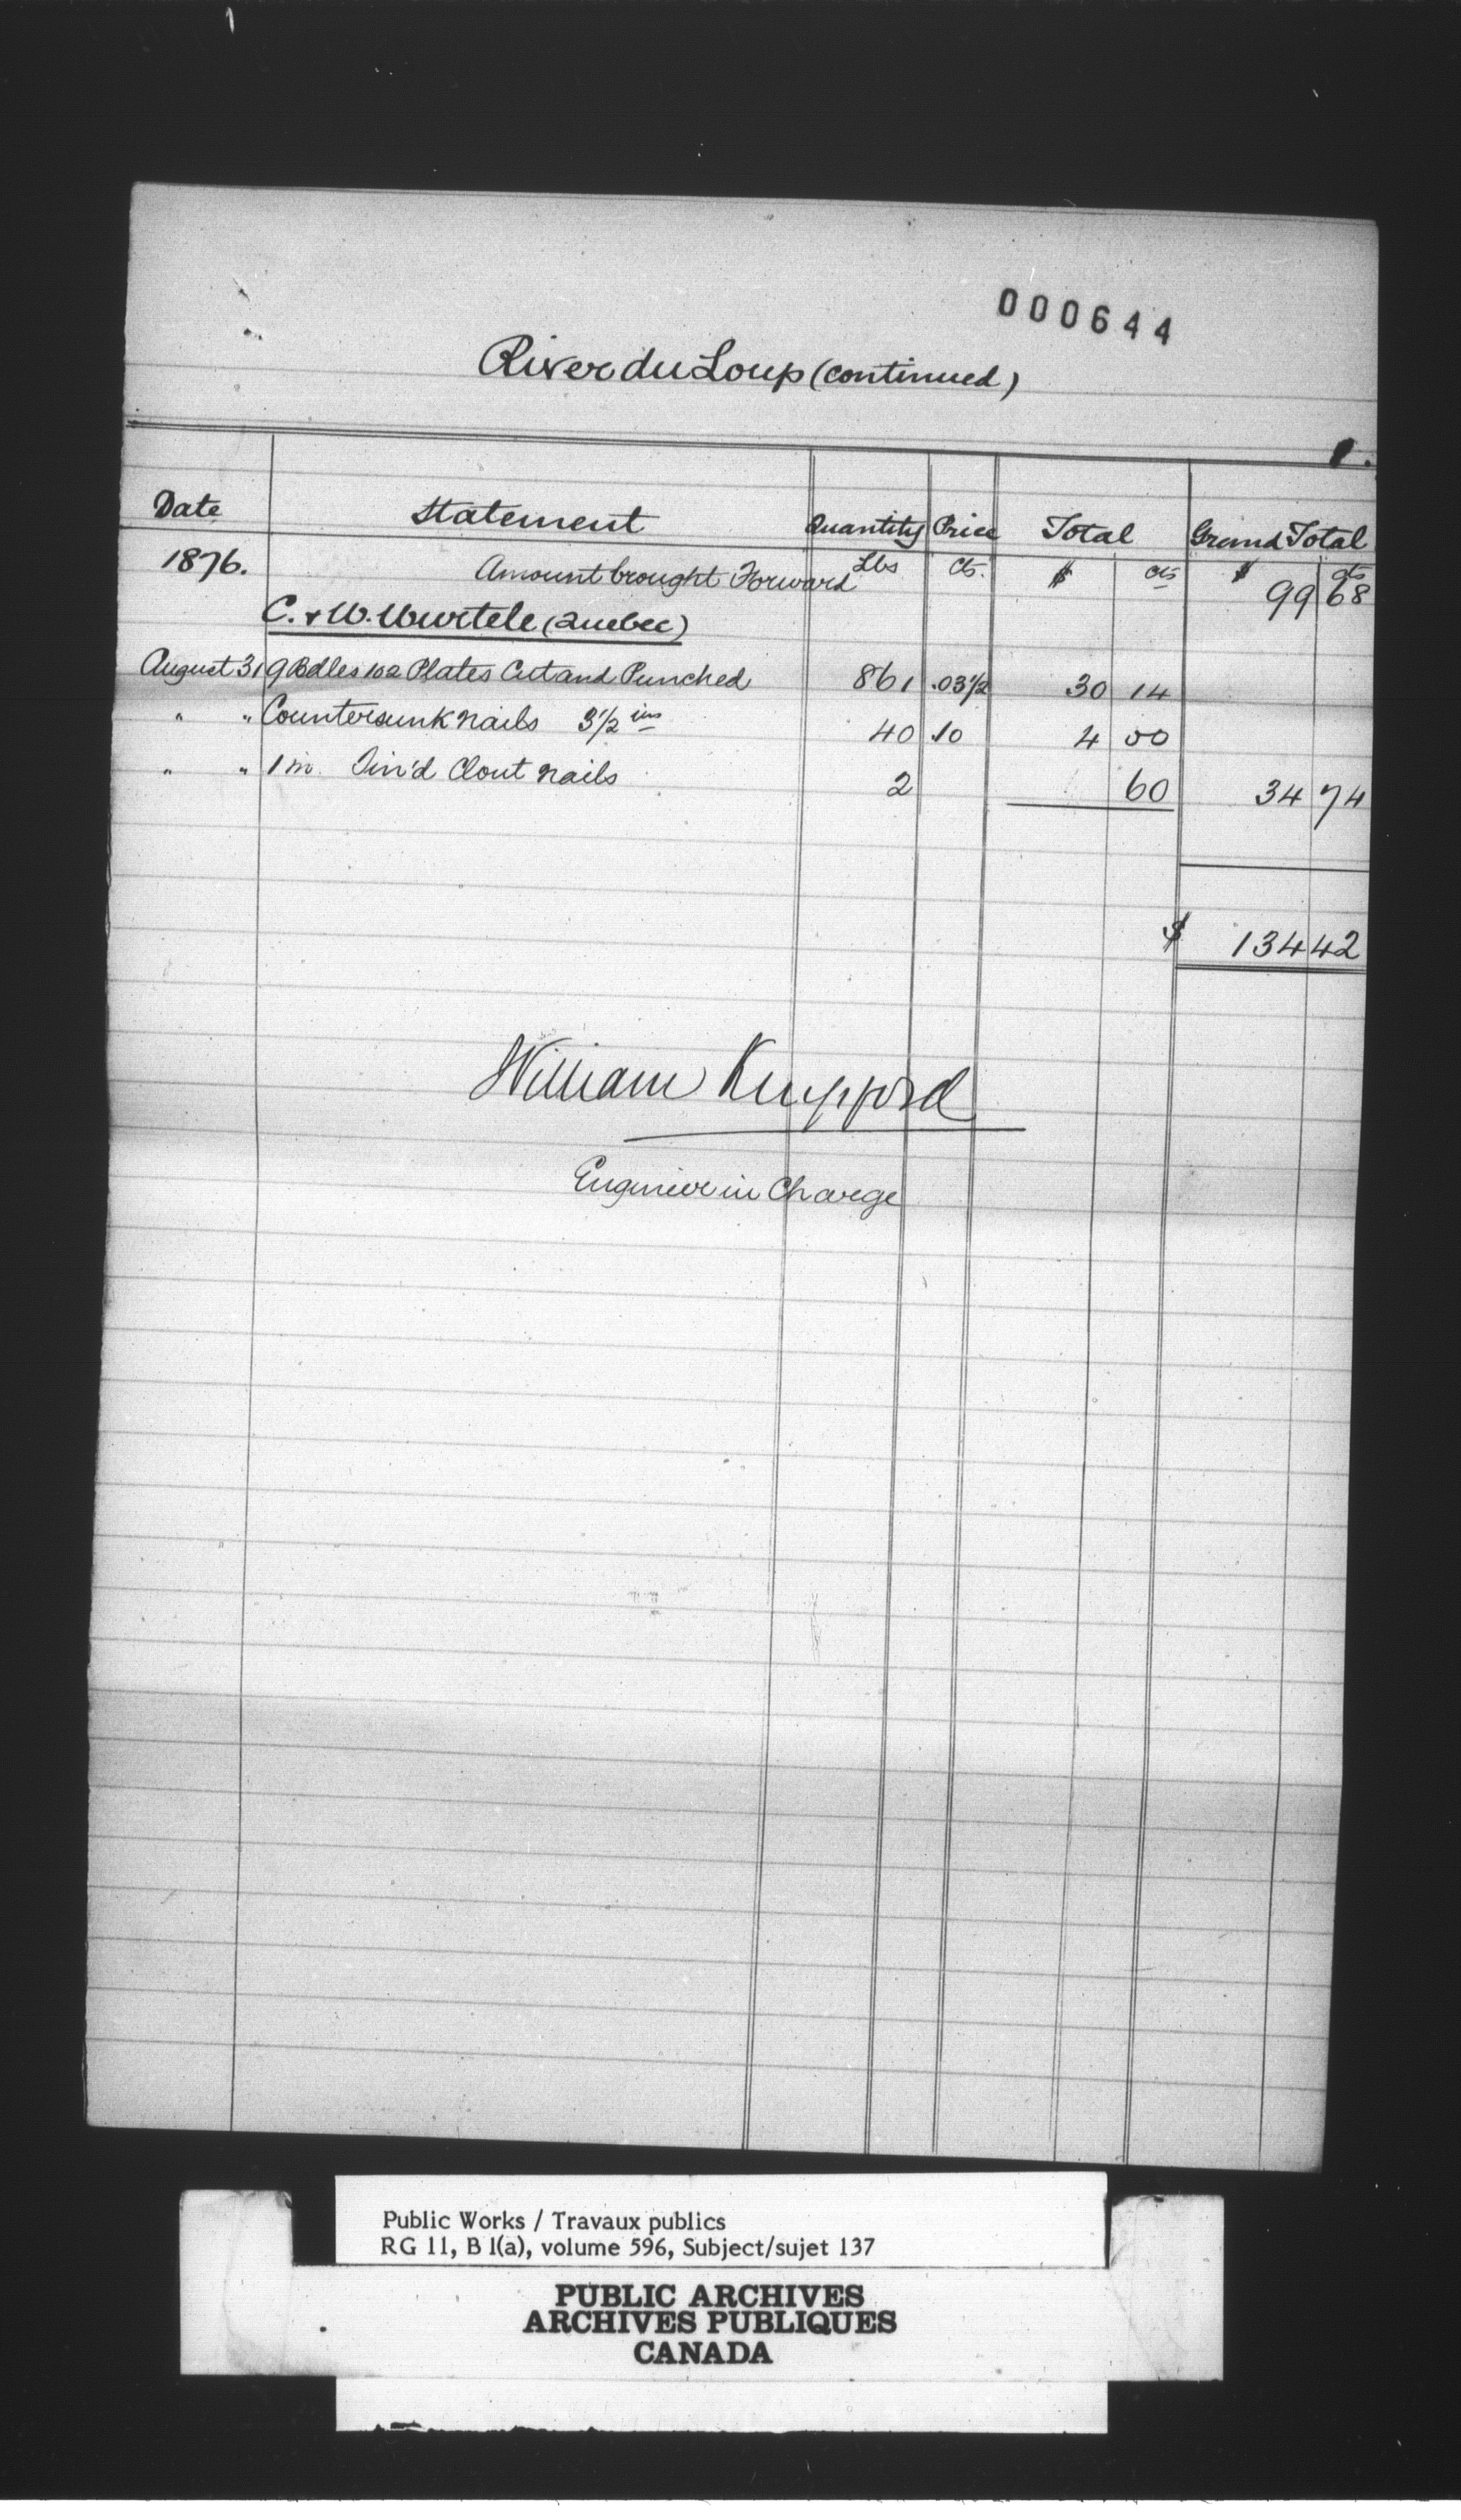 000644
River du Loup (continued)
1.
Date Statement Quantity Price Total Grand Total
1876. Amount brought Forward Lbs cts. $ cts $ 99 cts 68
C. & W. Wurtele (Quebec)
August 31 9 Bdles 102 Plates Cut and Punched 861 .03½ 30 14
" " Countersunk nails 3½ ins 40 .10 4 00
" " 1 in. Tin'd Clout nails 2 60 34 74
$ 134 42
William
Engineer in Charge
Public Works / Travaux publics
RG 11, B 1(a), volume 596, Subject/sujet 137
PUBLIC ARCHIVES
ARCHIVES PUBLIQUES
CANADA